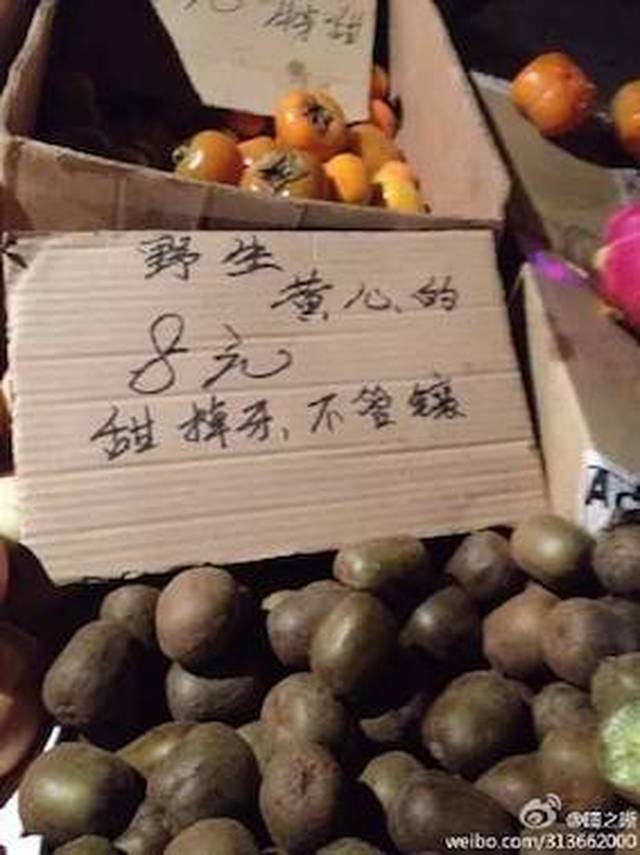 元
特甜
野生
黄心的
8元
甜掉牙、不管镶
A
@嘀之晰
weibo.com/313662000